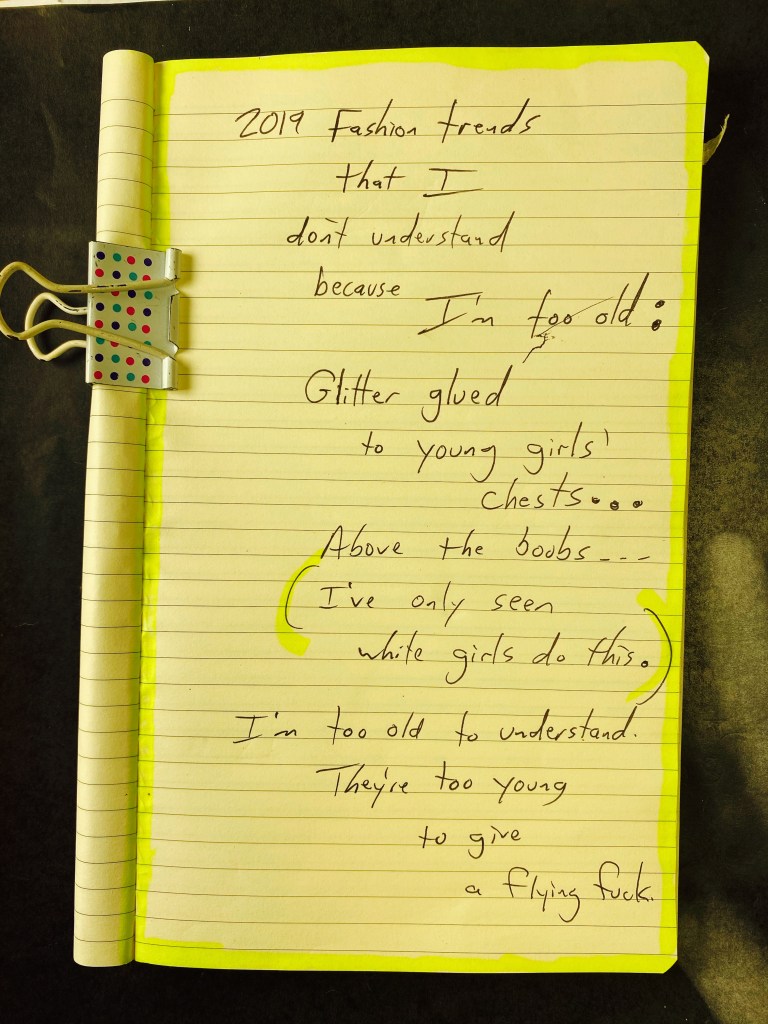 2019 Fashion trends
that I
don't understand
because
I'm too old:
Glitter glued
to young girls'
chests...
Above the boobs---
(I've only seen
white girls do this.)
I'm too old to understand.
They're too young
to give
a flying fuck.